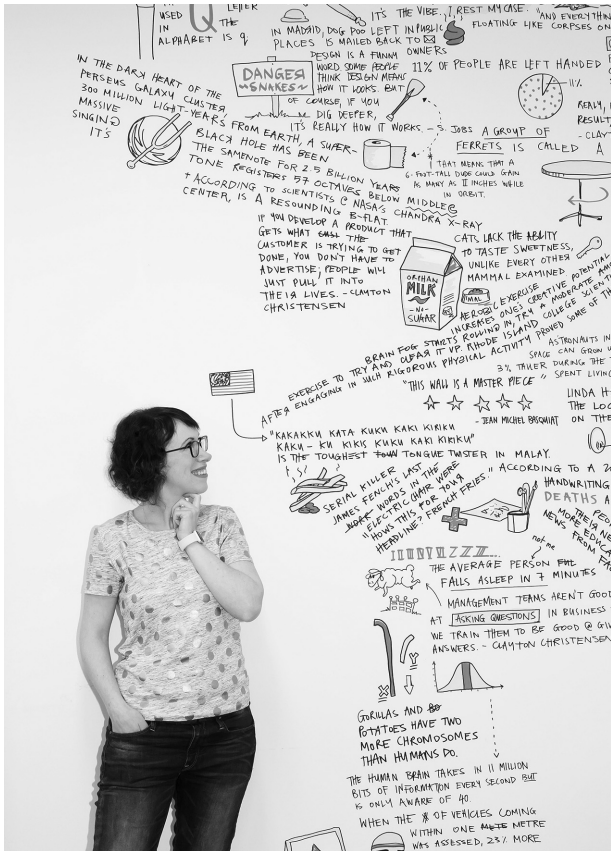 USED
IN
ALPHABET IS
LETTER
THE
q
Q
IT'S THE VIBE. I REST MY CASE.
"AND EVERYTHIN
FLOATING LIKE CORPSES ON
IN MADRID, DOG POO LEFT IN PUBLIC
PLACES IS MAILED BACK TO
OWNERS
DESIGN IS A FUNNY
WORD SOME PEOPLE
THINK DESIGN MEANS
HOW IT LOOKS. BUT
OF COURSE, IF YOU
DIG DEEPER,
IT'S REALLY HOW IT WORKS. - S. JOBS
DANGER
~SNAKES~
11% OF PEOPLE ARE LEFT HANDED
11%
REALY, I
RESULT
- CLAY
A GROUP OF
FERRETS IS CALLED A
THAT MEANS THAT A
6-FOOT-TALL DUDE COULD GAIN
AS MANY AS 11 INCHES WHILE
IN ORBIT.
IN THE DARK HEART OF THE
PERSEUS GALAXY CLUSTER,
300 MILLION LIGHT-YEARS FROM EARTH, A SUPER-
MASSIVE BLACK HOLE HAS BEEN
SINGING THE SAME NOTE FOR 2.5 BILLION YEARS
IT'S TONE REGISTERS 57 OCTAVES BELOW MIDDLE C
+ ACCORDING TO SCIENTISTS @ NASA'S CHANDRA X-RAY
CENTER, IS A RESOUNDING B-FLAT.
IF YOU DEVELOP A PRODUCT THAT
GETS WHAT THE
CUSTOMER IS TRYING TO GET
DONE, YOU DON'T HAVE TO
ADVERTISE; PEOPLE WILL
JUST PULL IT INTO
THEIR LIVES. - CLAYTON
CHRISTENSEN
CATS LACK THE ABILITY
TO TASTE SWEETNESS,
UNLIKE EVERY OTHER
MAMMAL EXAMINED
ORPHAN
MILK
-NO-
SUGAR
AEROBIC EXERCISE
INCREASES ONE'S CREATIVE POTENTIAL
BRAIN FOG STARTS ROLLING IN, TRY A MODERATE
EXERCISE TO TRY AND CLEAR IT UP. RHODE ISLAND COLLEGE SCIEN
AFTER ENGAGING IN SUCH RIGOROUS PHYSICAL ACTIVITY PROVED SOME OF TH
ASTRONAUTS IN
SPACE CAN GROW U
3% TALLER DURING THE
SPENT LIVIN
"THIS WALL IS A MASTER PIECE"
- JEAN MICHEL BASQUIAT
LINDA H
THE LO
ON THE
"KAKAKKU KATA KUKU KAKI KIRIKU
KAKU - KU KIKIS KUKU KAKI KIRIKU"
IS THE TOUGHEST TONGUE TWISTER IN MALAY.
SERIAL KILLER
JAMES FENCH'S LAST
WORDS IN THE
ELECTRIC CHAIR WERE
"HOWS THIS FOR YOUR
HEADLINE? FRENCH FRIES."
ACCORDING TO A 2
HANDWRITING
DEATHS A
PEO
THEIR NE
MORE EDUCA
NEWS FROM FA
not me
THE AVERAGE PERSON
FALLS ASLEEP IN 7 MINUTES
MANAGEMENT TEAMS AREN'T GOOD
AT ASKING QUESTIONS IN BUSINESS
WE TRAIN THEM TO BE GOOD @ GIV
ANSWERS. - CLAYTON CHRISTENSEN
X
Y
GORILLAS AND
POTATOES HAVE TWO
MORE CHROMOSOMES
THAN HUMANS DO.
THE HUMAN BRAIN TAKES IN 11 MILLION
BITS OF INFORMATION EVERY SECOND BUT
IS ONLY AWARE OF 40.
WHEN THE # OF VEHICLES COMING
WITHIN ONE METRE
WAS ASSESSED, 23% MORE